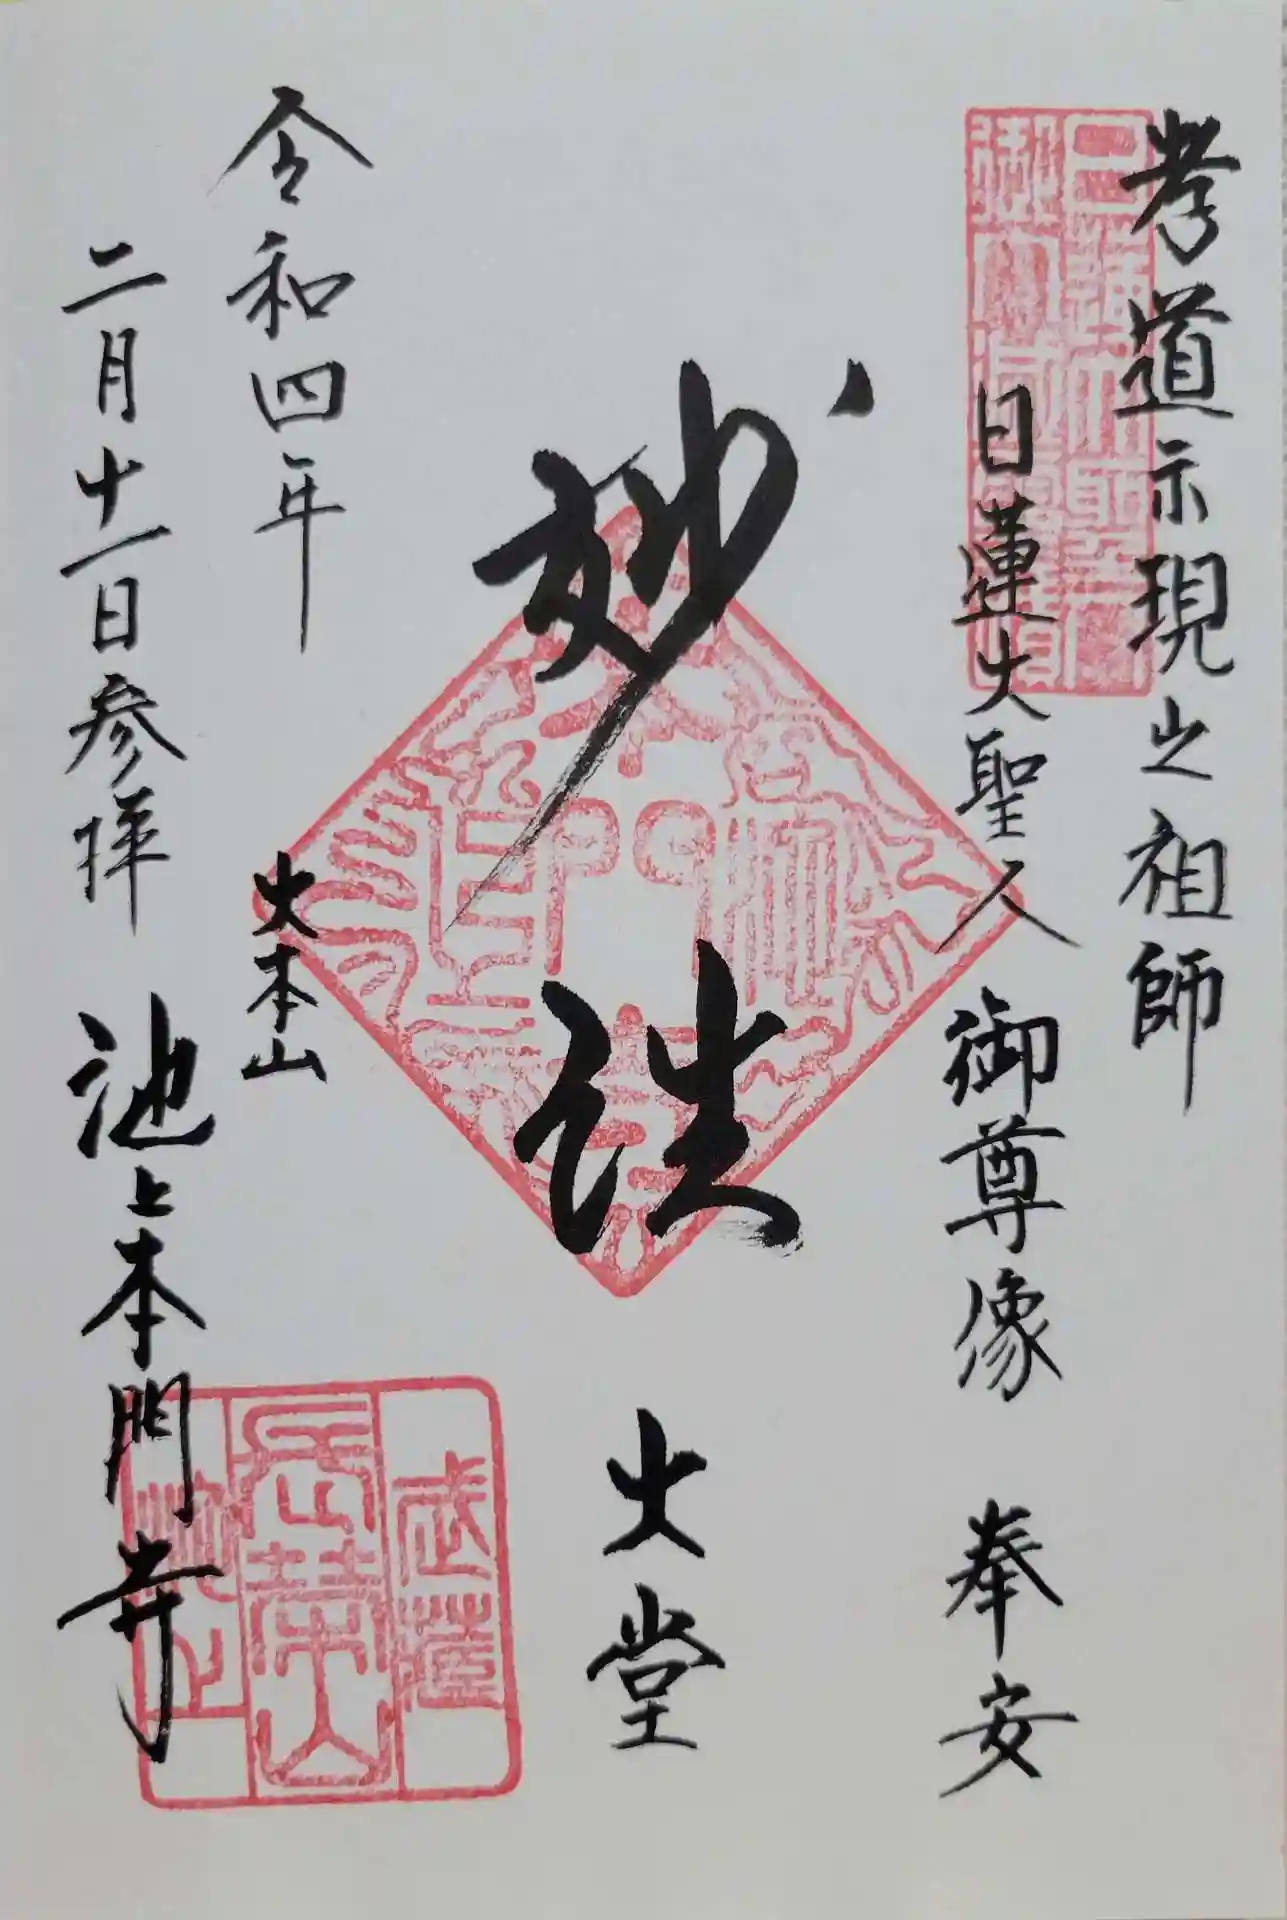 孝道示現之祖師
日蓮大聖人御尊像 奉安
妙法
大堂
令和四年
二月十一日参拝
大本山
池上本門寺
武蔵
長榮山
池上